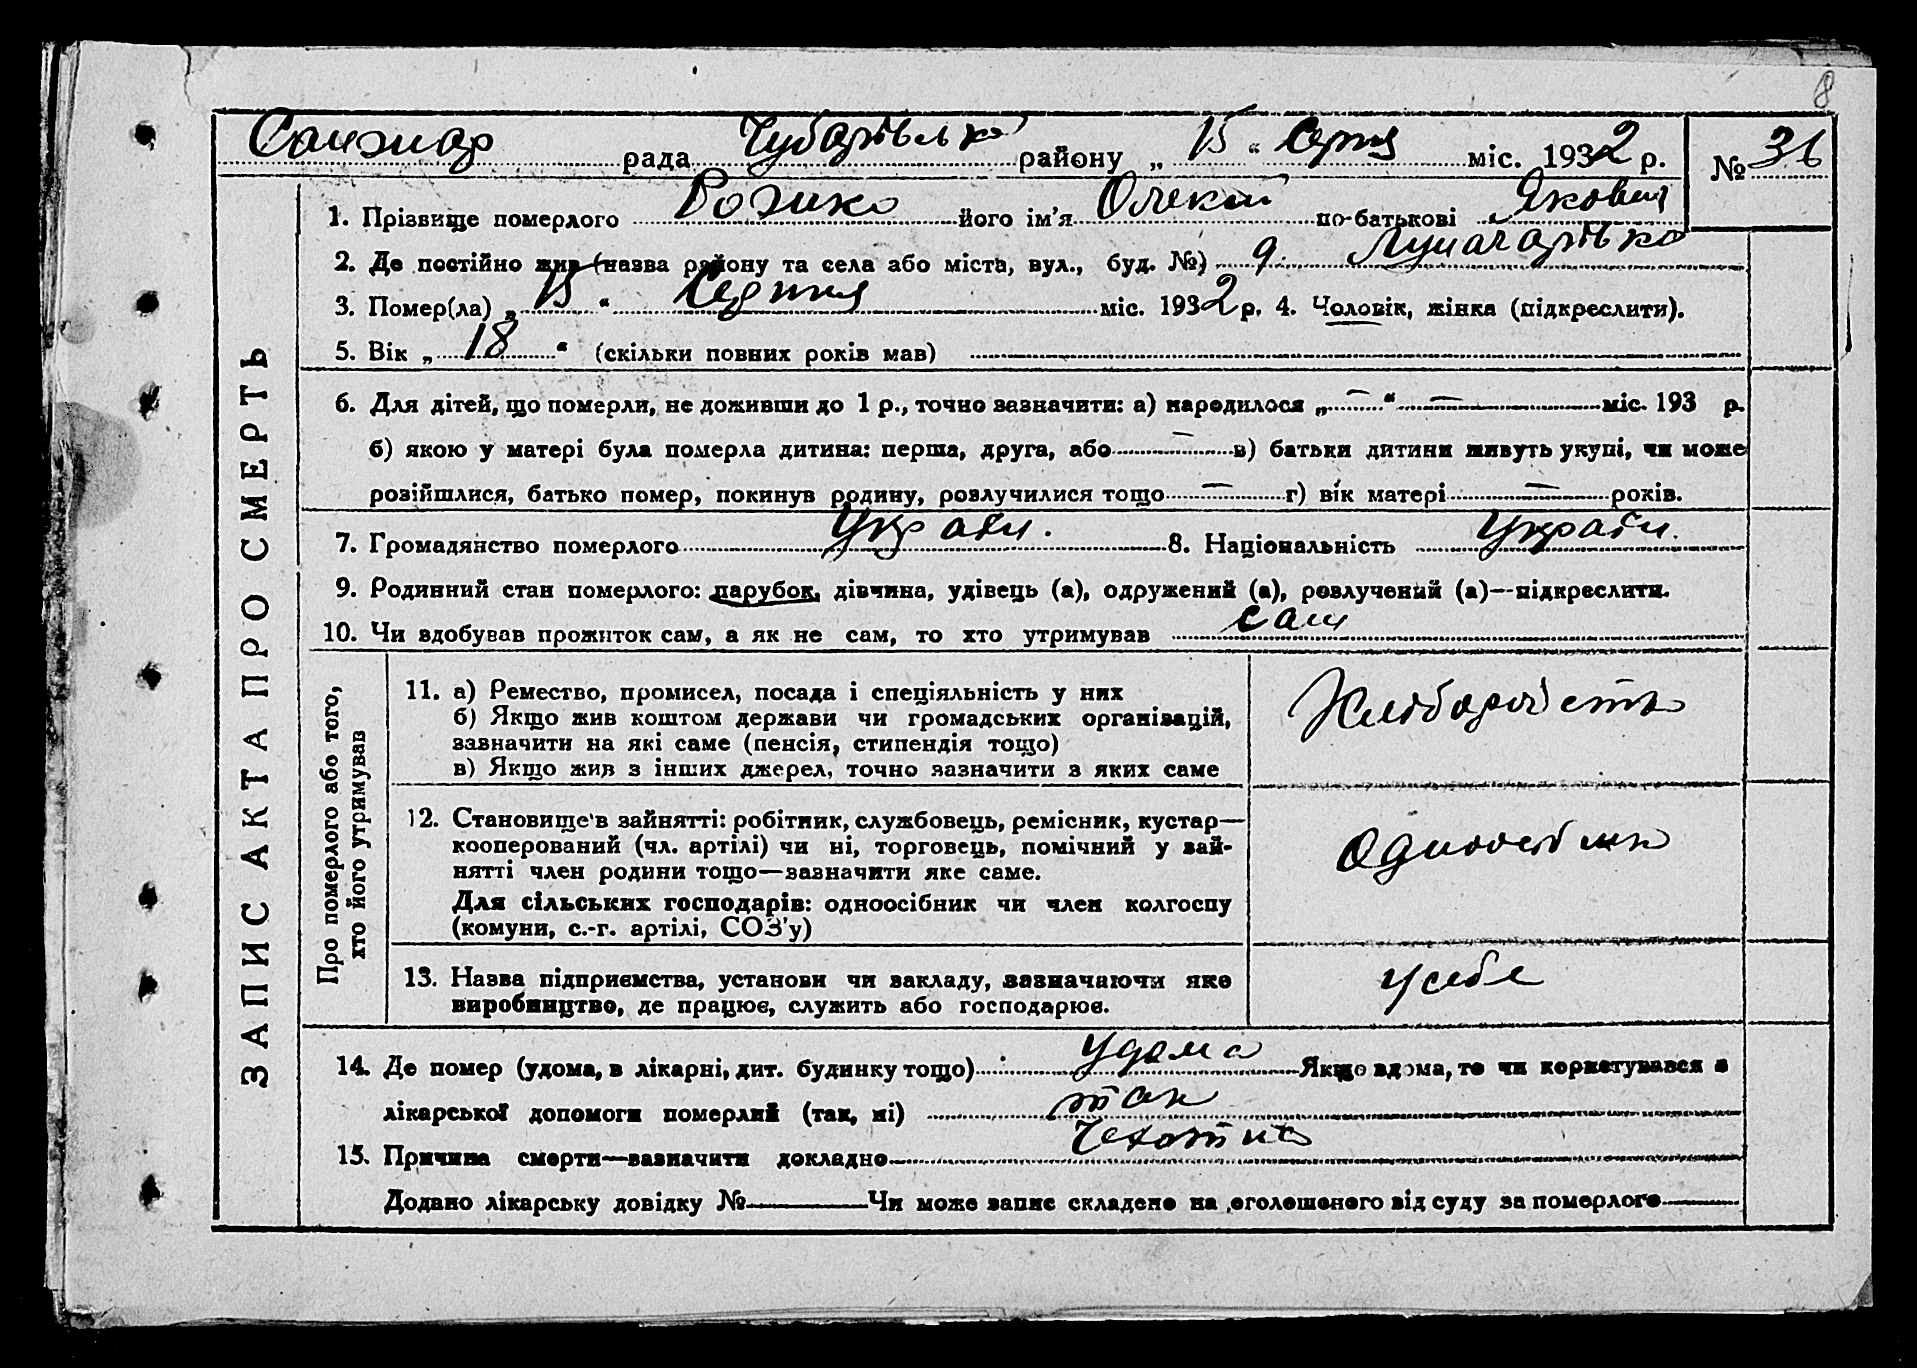 8
Санжар рада Чубарівськ району „ 15 “ Серпня міс. 1932 р. № 36
1. Прізвище померлого Рожко його ім’я Олексій по-батькові Якович
2. Де постійно жив (назва району та села або міста, вул., буд. №) с. Луначарівка
3. Помер(ла) „ 15 “ Серпня міс. 1932 р. 4. Чоловік, жінка (підкреслити).
5. Вік „ 18 “ (скільки повних років мав)
6. Для дітей, що померли, не доживши до 1 р., точно зазначити: а) народилося „ — “ — міс. 193 р.
б) якою у матері була померла дитина: перша, друга, або — в) батьки дитини живуть укупі, чи може
розійшлися, батько помер, покинув родину, розлучилися тощо — г) вік матері — років.
7. Громадянство померлого Україн. 8. Національність Україн.
9. Родинний стан померлого: парубок, дівчина, удівець (а), одружений (а), розлучений (а)—підкреслити.
10. Чи здобував прожиток сам, а як не сам, то хто утримував сам
ЗАПИС АКТА ПРО СМЕРТЬ
Про померлого або того,
хто його утримував
11. а) Ремество, промисел, посада і спеціяльність у них
б) Якщо жив коштом держави чи громадських організацій,
зазначити на які саме (пенсія, стипендія тощо)
в) Якщо жив з інших джерел, точно зазначити з яких саме
Хліборобство
12. Становище в зайнятті: робітник, службовець, ремісник, кустар—
кооперований (чл. артілі) чи ні, торговець, помічний у зай-
нятті член родини тощо—зазначити яке саме.
Для сільських господарів: одноосібник чи член колгоспу
(комуни, с.-г. артілі, СОЗ’у)
Одноосібник
13. Назва підприємства, установи чи закладу, зазначаючи яке
виробництво, де працює, служить або господарює.
у себе
14. Де помер (удома, в лікарні, дит. будинку тощо) удома Якщо вдома, то чи користувався з
лікарської допомоги померлий (так, ні) так
15. Причина смерти—зазначити докладно Чехотка
Додано лікарську довідку № — Чи може запис складено на оголошеного від суду за померлого —